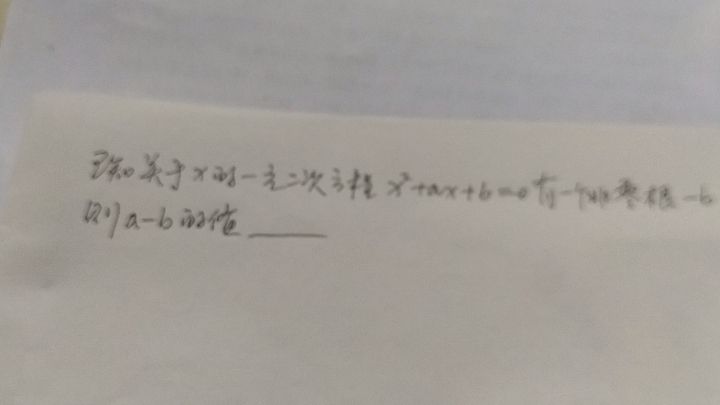 已知关于x的一元二次方程 x²+ax+b=0有一个非零根-b
则a-b的值____